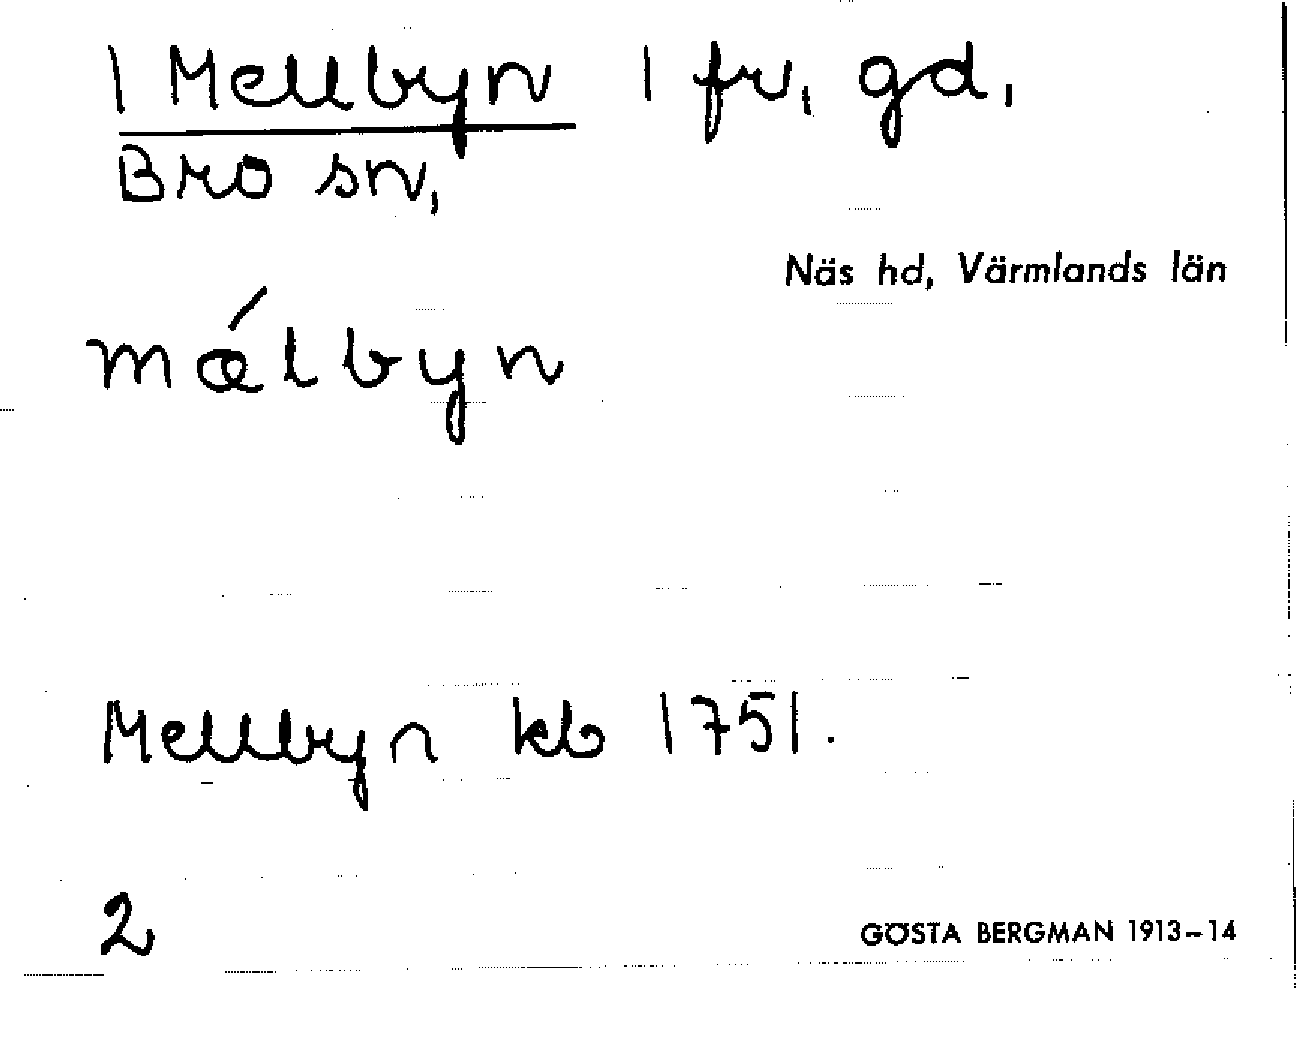 1 Mellbyn 1 fr, gd,
Bro sn,
Näs hd, Värmlands län
mǽlbyn
Mellbyn kb 1751.
2
GÖSTA BERGMAN 1913-14